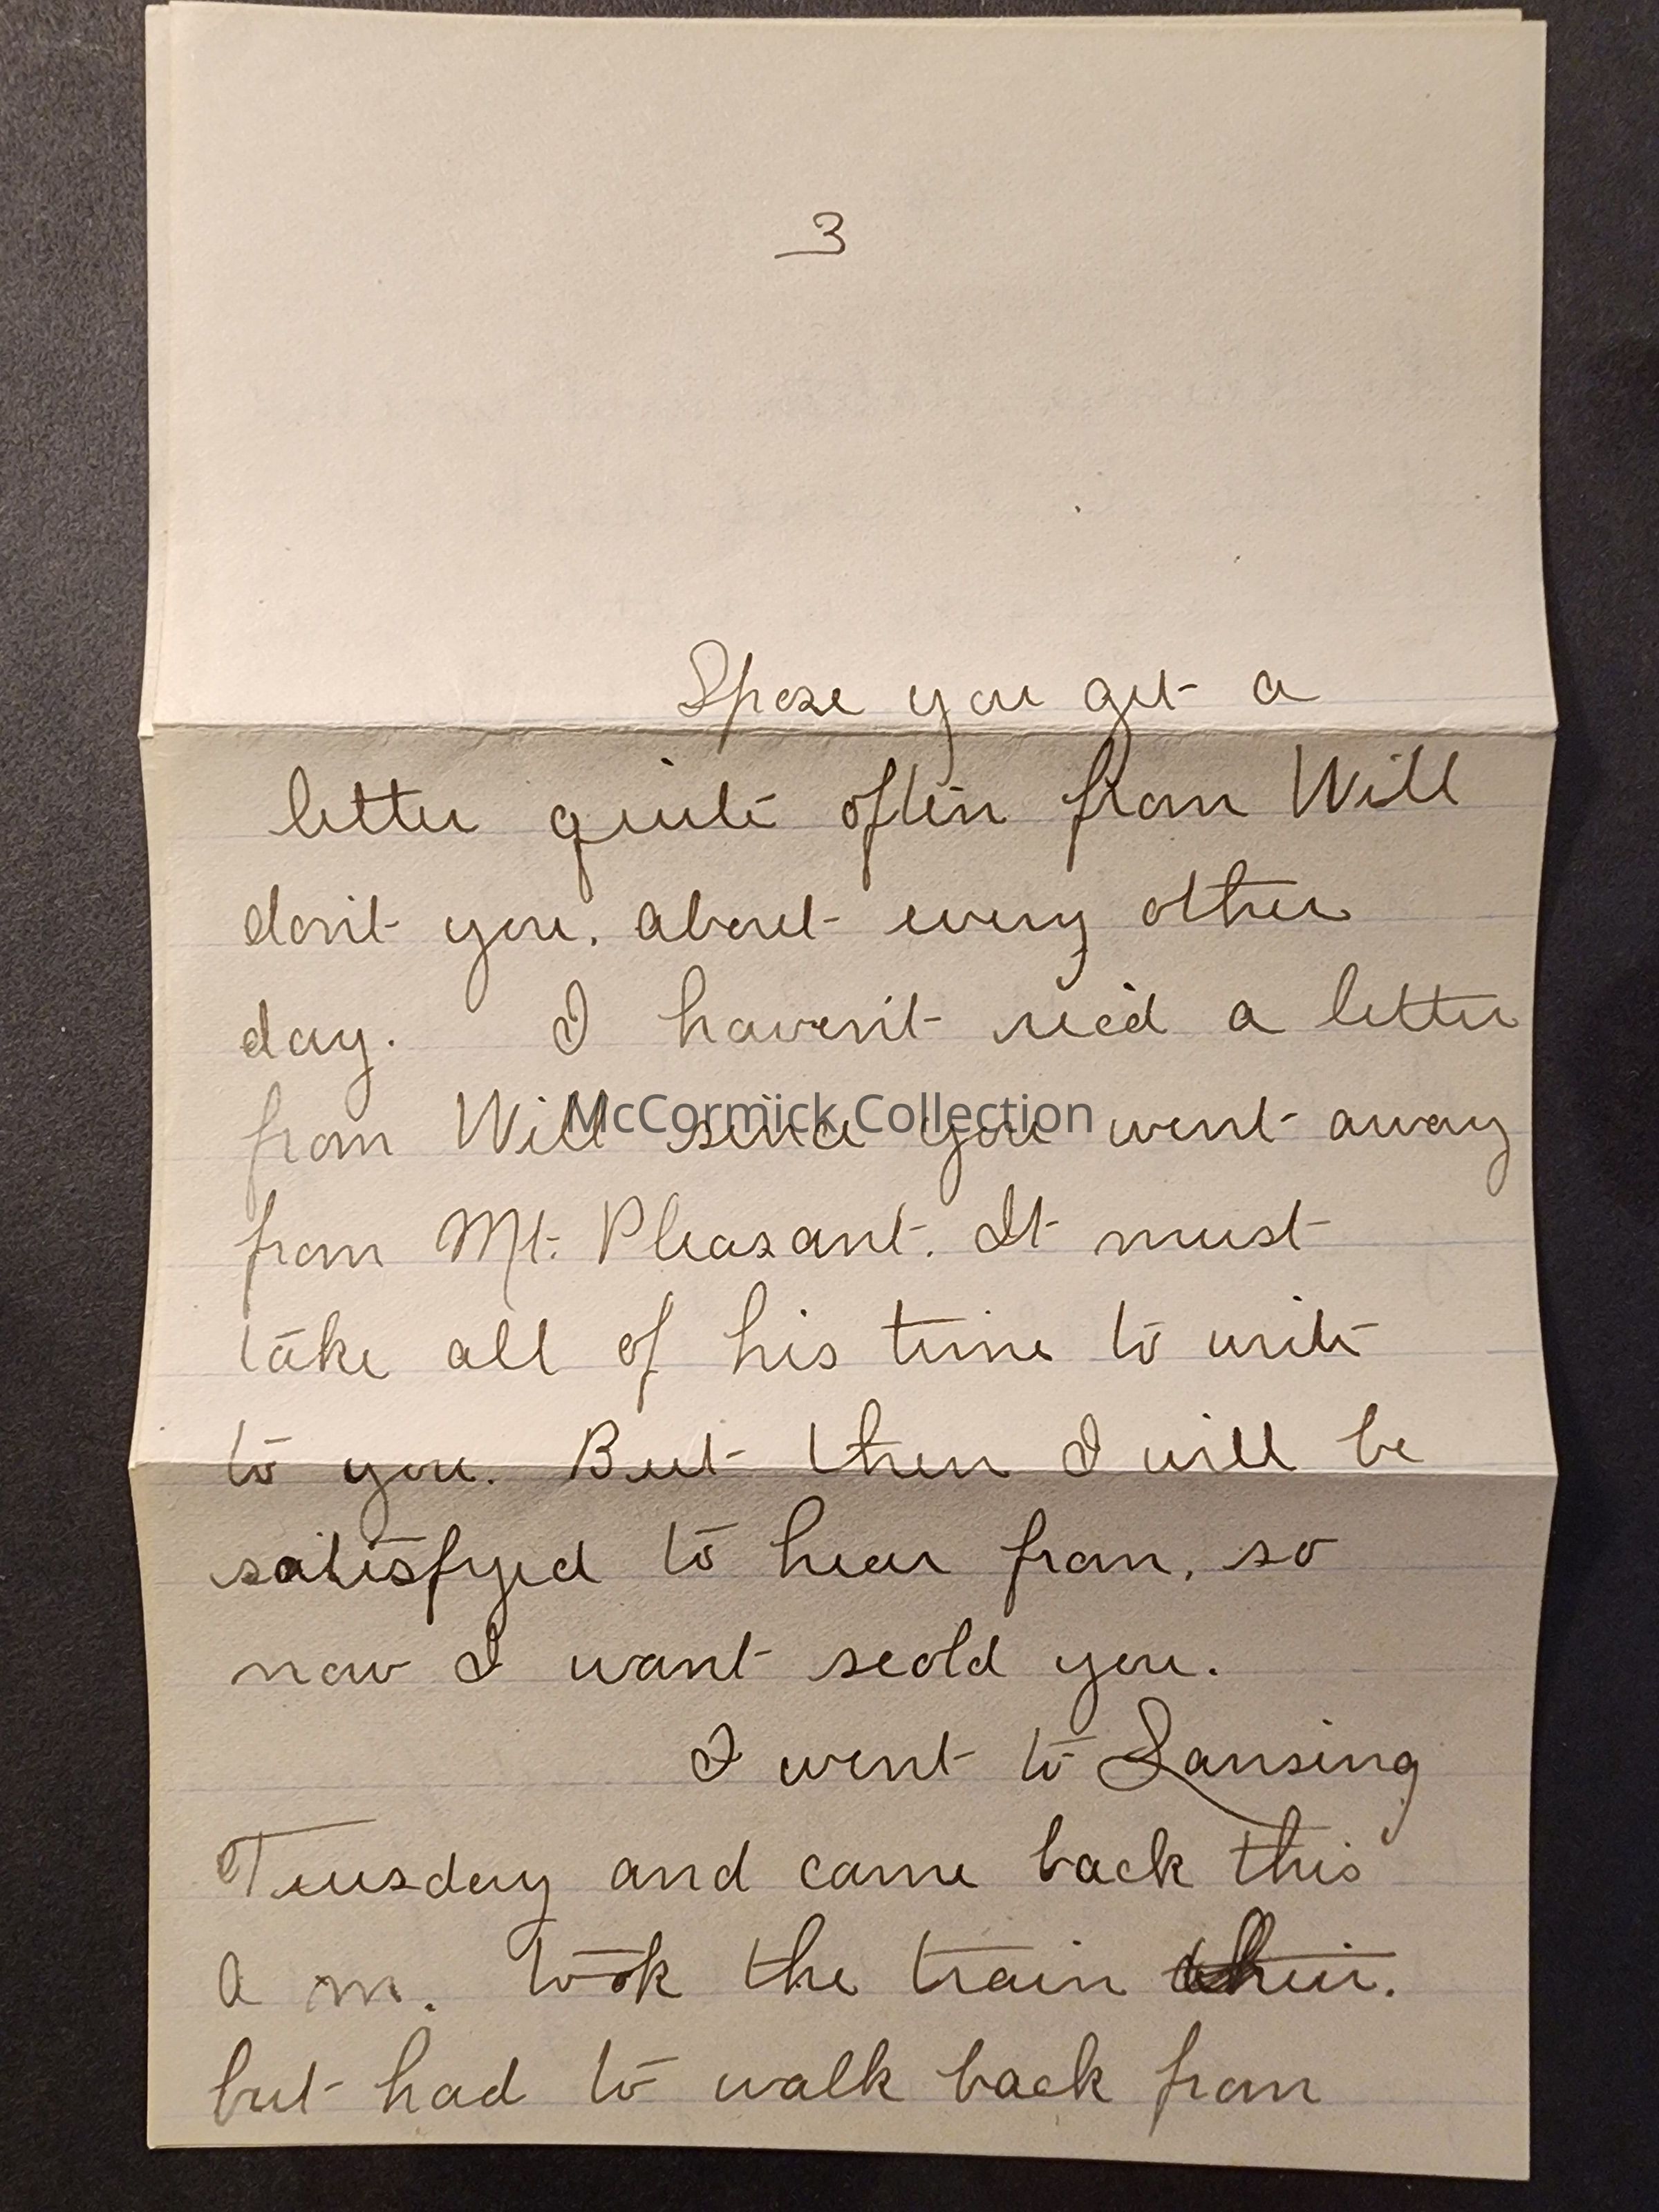 3
Spose you get a
letter quite often from Will
don't you. about every other
day. I haven't rec'd a letter
from Will since you went away
McCormick Collection
from Mt. Pleasant. It must
take all of his time to write
to you. But then I will be
satisfyed to hear from, so
now I want scold you.
I went to Lansing
Tuesday and came back this
a m. took the train their.
but had to walk back from